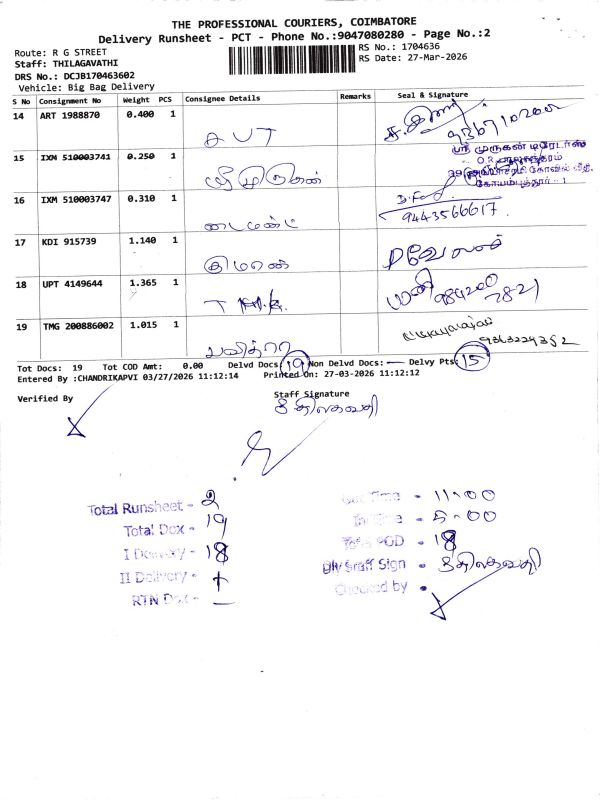 THE PROFESSIONAL COURIERS, COIMBATORE
Delivery Runsheet - PCT - Phone No.:9047080280 - Page No.:2
Route: R G STREET
RS No.: 1704636
Staff: THILAGAVATHI
RS Date: 27-Mar-2026
DRS No.: DCJB170463602
Vehicle: Big Bag Delivery
S No Consignment No Weight PCS Consignee Details Remarks Seal & Signature
14 ART 1988870 0.400 1
15 IXM 510003741 0.250 1
ஸ்ரீ முருகன் டிரேடர்ஸ்
கோயம்புத்தூர் - 1
16 IXM 510003747 0.310 1
டைமண்ட் 9443566617
17 KDI 915739 1.140 1
18 UPT 4149644 1.365 1
மணி 984200
7821
19 TMG 200886002 1.015 1
பவித்ரா
Tot Docs: 19 Tot COD Amt: 0.00 Delvd Docs: 19 Non Delvd Docs: — Delvy Pts: 15
Entered By :CHANDRIKAPVI 03/27/2026 11:12:14 Printed On: 27-03-2026 11:12:12
Verified By Staff Signature
Total Runsheet - 2
Total Dox - 19
I Delivery - 18
II Delivery - 1
RTN Dox - —
Out Time - 11-00
In Time - 5-00
Total POD - 18
Dly Staff Sign -
Checked by -